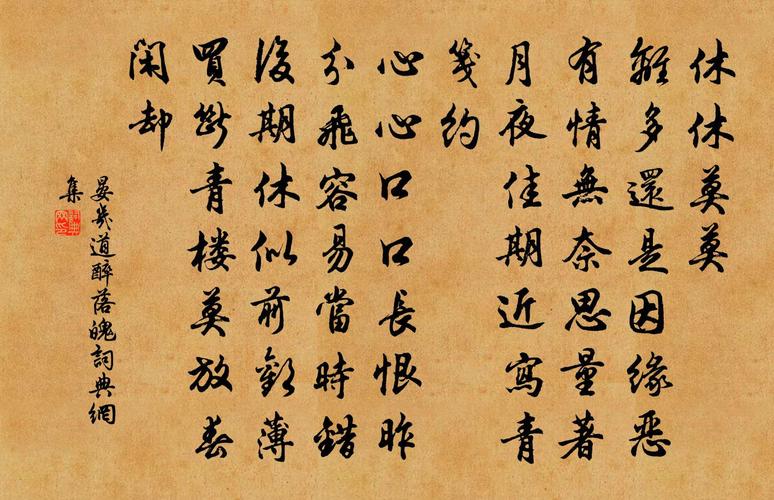 休休莫莫
離多還是因緣惡
有情無奈思量著
月夜佳期近寫青
箋約
心心口口長恨昨
分飛容易當時錯
後期休似前歡薄
買斷青楼莫放春
閑却
晏幾道醉落魄詞典網
集